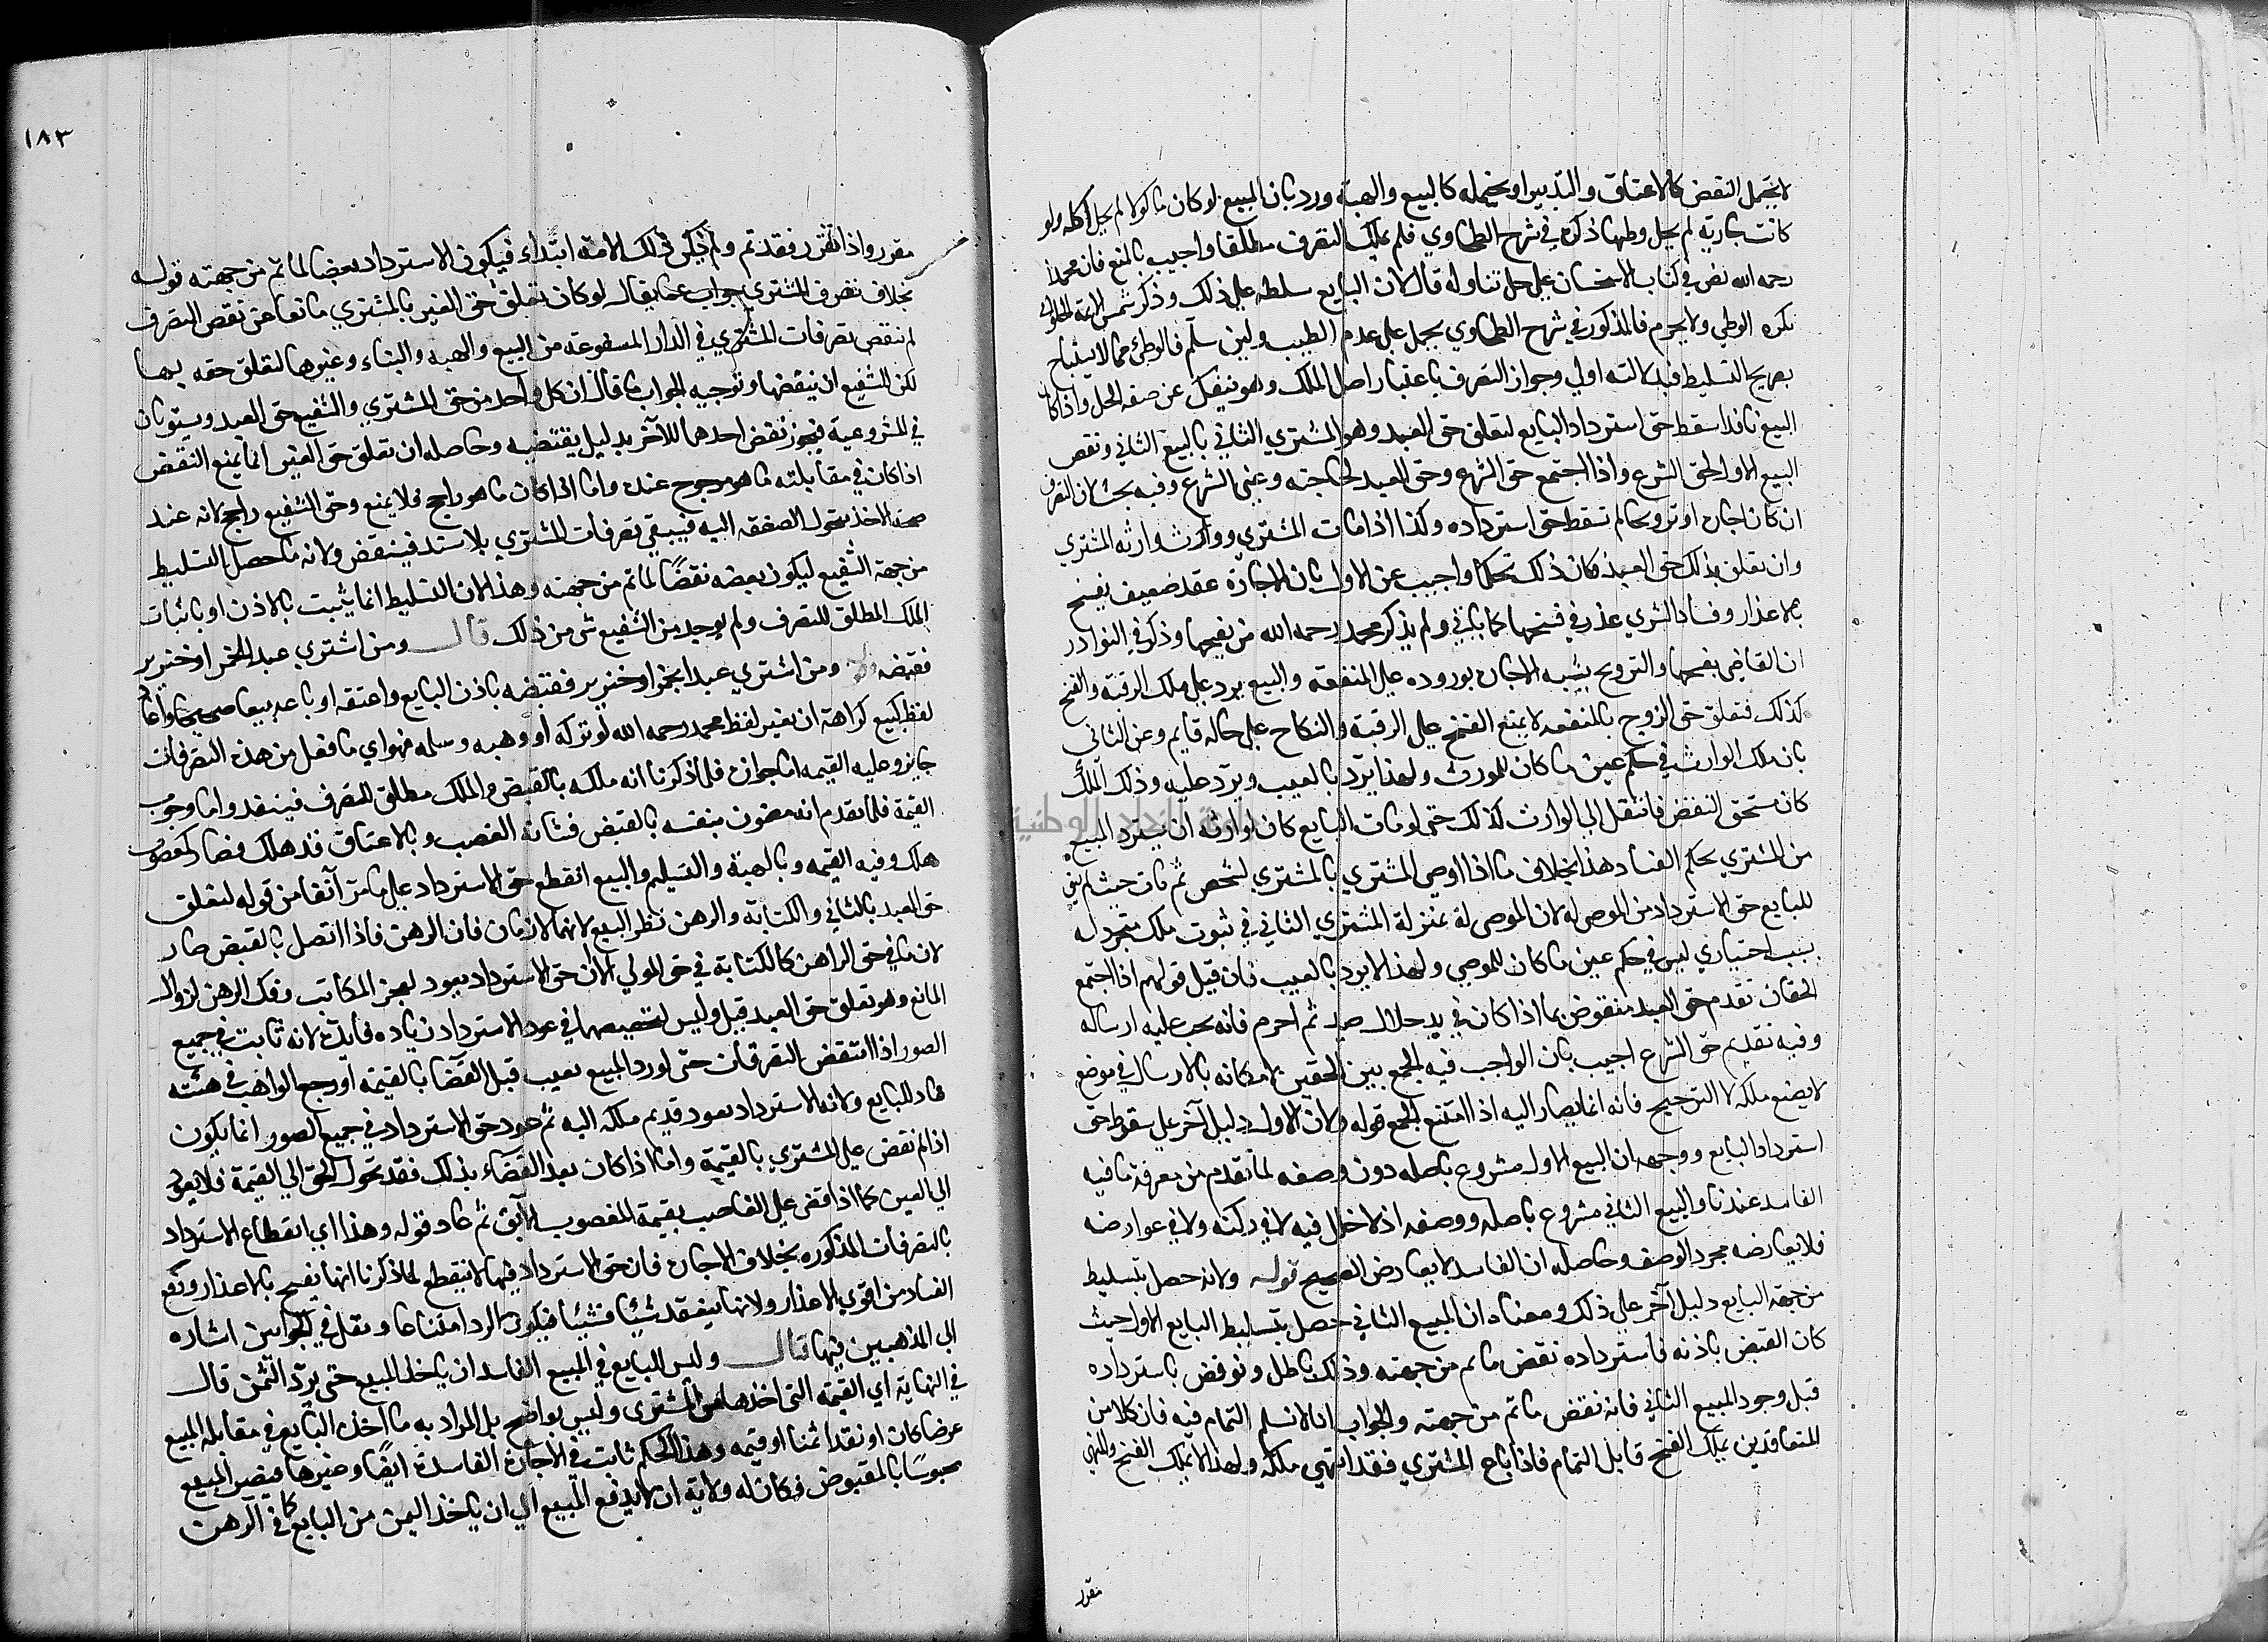 لا يحتمل النقض كالاعتاق والتدبير او يحتمله كالبيع والهبة ورد بان المبيع لو كان ماكولا لم يحل اكله ولو
كانت جارية لم يحل وطيها ذكره في شرح الطحاوي فلم يملك التصرف مطلقا واجيب بالمنع فان محمدا
رحمه الله نص في كتاب الاستحسان علي حل تناوله قال لان البايع سلطه علي ذلك وذكر شمس الايمة الحلواني
يكره الوطي ولا يحرم فالمذكور في شرح الطحاوي يحمل علي عدم الطيب ولين سلم فالوطئ مما لا يستباح
بصريح التسليط فبدلالته اولي وجواز التصرف باعتبار اصل الملك وهو ينفك عن صفة الحل واذا كان
البيع نافذا سقط حق استرداد البايع لتعلق حق العبد وهو المشتري الثاني بالبيع الثاني ونقص
البيع الاول لحق الشرع واذا اجتمع حق الشرع وحق العبد لحاجته وغني الشرع وفيه بحث لان التصرف
ان كان اجارة او تزويجا لم تسقط حق استرداده وكذا اذا مات المشتري وورث وارثه المشتري
وان تعلق بذلك حق العبد فكان ذلك تحكما واجيب عن الاول بان الاجارة عقد ضعيف يفسخ
بالاعذار وفساد الشري عذر في فسخها كما ياتي ولم يذكر محمد رحمه الله من يفسخها وذكر في النوادر
ان القاضي يفسخها والتزويج يشبه الاجارة بوروده علي المنفعة والبيع يرد علي ملك الرقبة والفسخ
كذلك فتعلق حق الزوج بالمنفعة لا يمنع الفسخ علي الرقبة والنكاح علي حاله قايم وعن الثاني
بان ملك الوارث في حكم عين ما كان للمورث ولهذا يرد بالعيب ويرد عليه وذلك الملك
كان مستحق النقض فانتقل الي الوارث كذلك حتي لو مات البايع كان لوارثه ان يسترد المبيع
من المشتري بحكم الفساد هذا بخلاف ما اذا اوصي المشتري بالمشتري لشخص ثم مات حيث لم يبق
للبايع حق الاسترداد من الموصي له لان الموصي له بمنزلة المشتري الثاني في ثبوت ملك متجدد له
بسبب اختياري ليس في حكم عين ما كان للموصي ولهذا لا يرد بالعيب فان قيل قولهم اذا اجتمع
الحقان تقدم حق العبد منقوض بما اذا كان في يد حلال صيد ثم احرم فانه يجب عليه ارساله
وفيه تقديم حق الشرع اجيب بان الواجب فيه الجمع بين الحقين بامكانه بالارسال في موضع
لا يضيع ملكه لا الترجيح فانه انما يصار اليه اذا امتنع الجمع قوله ولان الاول دليل آخر علي سقوط حق
استرداد البايع ووجهه ان البيع الاول مشروع باصله دون وصفه لما تقدم من معرفة ما فيه
الفاسد عندنا والبيع الثاني مشروع باصله ووصفه اذ لا خلل فيه لا في ركنه ولا في عوارضه
فلا يعارضه مجرد الوصف وحاصله ان الفاسد لا يعارض الصحيح قوله ولانه حصل بتسليط
من جهة البايع دليل آخر علي ذلك ومعناه ان المبيع الثاني حصل بتسليط البايع الاول حيث
كان القبض باذنه فاسترداده نقض ما تم من جهته وذلك باطل ونوقض باسترداده
قبل وجود المبيع الثاني فانه نقض ما تم من جهته والجواب انا لا نسلم التمام فيه فان كلا من
المتعاقدين يملك الفسخ قابل التمام فاذا باع المشتري فقد انتهي ملكه ولهذا لا يملك الفسخ والنهي
مقرر
١٨٣
مقرر واذا تقرر فقد تم ولم يكن ذلك لامته ابتداء فيكون الاسترداد بعضا لما تم من جهته قوله
بخلاف تصرف المشتري جواب عما يقال لو كان تعلق حق الغير بالمشتري مانعا عن نقض التصرف
لم ينقض تصرفات المشتري في الدار المشفوعة من البيع والهبة والبناء وغيرها لتعلق حقه بها
لكن الشفيع ان ينقضها وتوجيه الجواب ما قال ان كل واحد من حق المشتري والشفيع حق العبد ويستويان
في المشروعية فيجوز نقض احدهما للآخر بدليل يقتضيه وحاصله ان تعلق حق الغير انما يمنع النقض
اذا كان في مقابلته ما هو مرجوح عنده واما اذا كان ما هو راجح فلا يمنع وحق الشفيع راجح لانه عند
صحة الاخذ تتحول الصفقة اليه فيبقي تصرفات المشتري بلا سند فينتقض ولانه ما حصل بالتسليط
من جهة الشفيع ليكون بعضه نقضا لما تم من جهته وهذا لان التسليط انما يثبت بالاذن او باثبات
الملك المطلق للتصرف ولم يوجد من الشفيع شي من ذلك قال ومن اشتري عبدا بخمر او خنزير
فقبضه ومن اشتري عبدا بخمر او خنزير فقبضه باذن البايع واعتقه او باعه بيعا صحيحا واعاد
لفظ البيع كراهة ان يغير لفظ محمد رحمه الله لو تركه او وهبه وسلمه فهو اي ما فعل من هذه التصرفات
جايز وعليه القيمه اما جوازه فلما ذكرنا انه ملكه بالقبض والملك مطلق للتصرف فينفذ واما وجوب
القيمة فلما تقدم انه مضمون بنفسه بالقبض فشابه الغصب وبالاعتاق قد هلك فصار كمغصوب
هلك وفيه القيمه وبالهبة والتسليم والبيع انقطع حق الاسترداد علي ما مر آنفا من قوله لتعلق
حق العبد بالثاني والكتابة والرهن نظر البيع لانهما لازمان فان الرهن فاذا اتصل بالقبض صار
لازما في حق الراهن كالكتابة في حق المولي الا ان حق الاسترداد يعود لعجز المكاتب وفك الرهن لزوال
المانع وهو تعلق حق العبد قيل وليس لتخصيصهما في عود الاسترداد زياده فائدة لانه ثابت في جميع
الصور اذا انتقض التصرفان حتي لو رد المبيع بعيب قبل القضا بالقيمة او رجع الواهب في هبته
عاد للبايع ولانه الاسترداد يعود قديم ملكه اليه ثم عود حق الاسترداد في جميع الصور انما يكون
اذا لم نقض علي المشتري بالقيمة واما اذا كان بعد القضاء بذلك فقد تحول الحق الي القيمة فلا يعود
الي العين كما اذا قضي علي الغاصب بقيمة المغصوب الآبق ثم عاد قوله وهذا اي انقطاع الاسترداد
بالتصرفات المذكوره بخلاف الاجارة فان حق الاسترداد فيها لا ينقطع لما ذكرنا انها يفسخ بالاعذار ودفع
الفساد من اقوي الاعذار ولانها ينعقد شيئا فشيئا فيكون الرد امتناعا ونقل في الجوابين اشاره
الي المذهبين فيها قال وليس للبايع في المبيع الفاسد ان ياخذ المبيع حتي يرد الثمن قال
في النهاية اي القيمة التي اخذها من المشتري وليس بواضح بل المراد به ما اخذه البايع في مقابلة المبيع
عرضا كان او نقدا ثمنا او قيمه وهذا الحكم ثابت في الاجارة الفاسدة ايضا وغيرها فيصير المبيع
محبوسا بالمقبوض فكان له ولاية ان لا يدفع المبيع الي ان ياخذ الثمن من البايع كما في الرهن